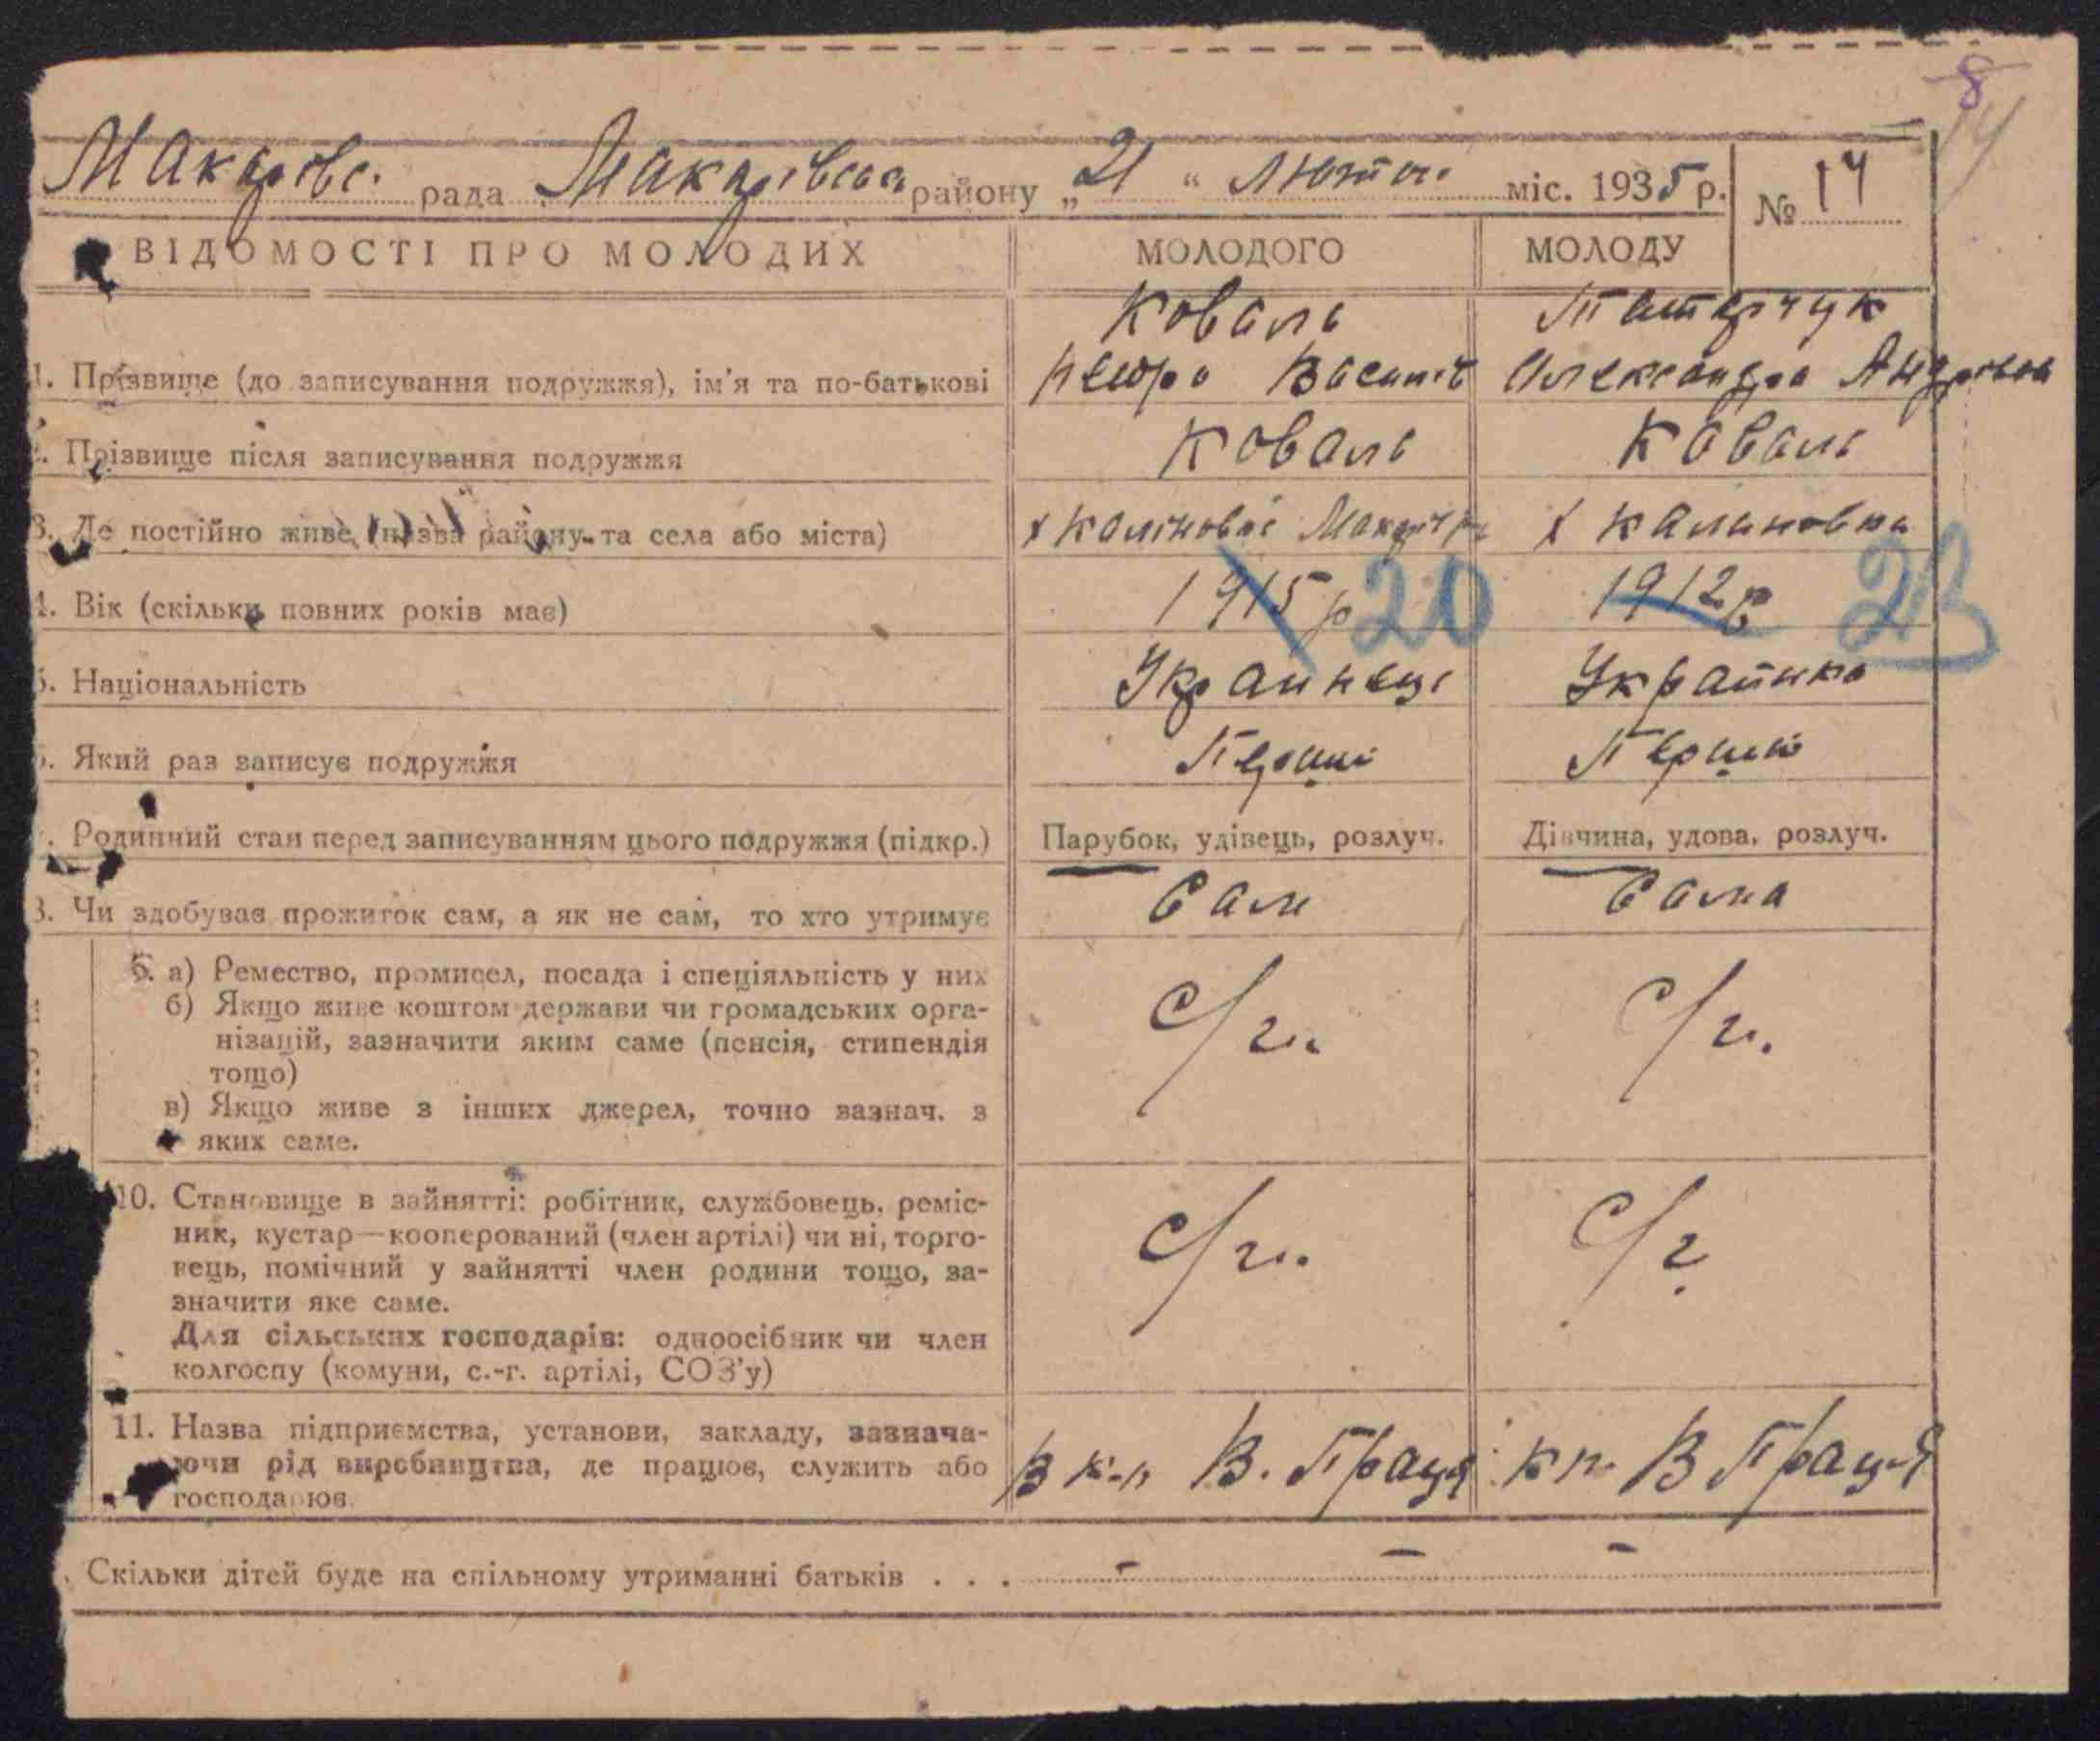 8
14
Макарівс. рада Макарівськ району „21“ Лютого міс. 1935 р. № 14
ВІДОМОСТІ ПРО МОЛОДИХ МОЛОДОГО МОЛОДУ
Коваль Татарчук
1. Прізвище (до записування подружжя), ім'я та по-батькові Петро Василів Олександра Андрівна
Прізвище після записування подружжя Коваль Коваль
3. Де постійно живе (назва району та села або міста) х Каліновка х Калиновка
4. Вік (скільки повних років має) 1915 р 20 1912 р 23
Національність Украинець Украинка
Який раз записує подружжя Перший Перший
Родинний стан перед записуванням цього подружжя (підкр.) Парубок, удівець, розлуч. Дівчина, удова, розлуч.
8. Чи здобуває прожиток сам, а як не сам, то хто утримує Сам Сама
а) Ремество, промисел, посада і спеціяльність у них с/г. с/г.
б) Якщо живе коштом держави чи громадських орга-
нізацій, зазначити яким саме (пенсія, стипендія
тощо)
в) Якщо живе з інших джерел, точно зазнач. з
яких саме.
10. Становище в зайнятті: робітник, службовець, реміс-
ник, кустар—кооперований (член артілі) чи ні, торго-
вець, помічний у зайнятті член родини тощо, за-
значити яке саме. с/г. с/г
Для сільських господарів: одноосібник чи член
колгоспу (комуни, с.-г. артілі, СОЗ'у)
11. Назва підприємства, установи, закладу, зазнача-
ючи рід виробництва, де працює, служить або В к-п В. Праця кп В Праця
господарює.
Скільки дітей буде на спільному утриманні батьків . . . – – –